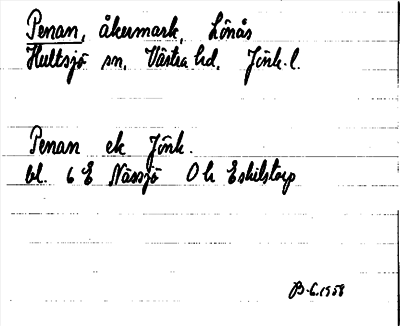 Penan, åkermark, Lönås
Hultsjö sn, Västra hd, Jönk. l.
Penan ek Jönk.
bl. 6 E Nässjö O h Eskilstorp
B-G.1958